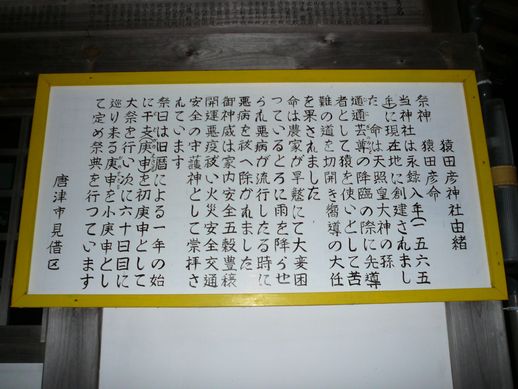 猿田彦神社由緒
祭神　猿田彦命
当神社は永録八年(一五六五
年)に現在地に創建されまし
た　命は天照皇大神の孫
通通芸尊の降臨の際に先導
者として猿を使いとして苦
難の道を切開き嚮導の大任
を果されました
命は農家が旱魃にて大変困
つているところに雨を降らせ
られ悪病が流行したる時に
悪病を祓い除かれました
御神威は家内安全五穀豊穣
開運悪疫祓い火災安全交通
安全の守護神として崇拝さ
れています
祭日は旧暦による一年の始
に干支庚申を初庚申として
大祭を行い次に六十日目に
巡り来る庚申を小庚申とし
て定め祭典を行つています
唐津市見借区